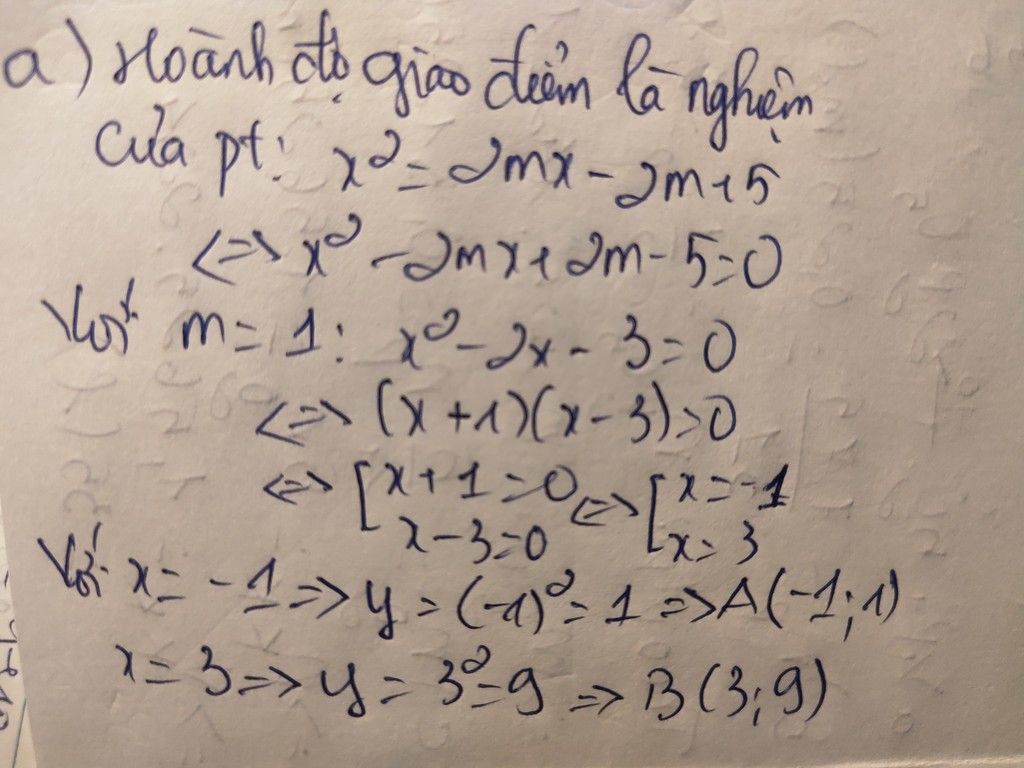 a) Hoành độ giao điểm là nghiệm
của pt: x² = 2mx - 2m + 5
<=> x² - 2mx + 2m - 5 = 0
Với m = 1: x² - 2x - 3 = 0
<=> (x + 1)(x - 3) = 0
<=> [x + 1 = 0 <=> [x = -1
x - 3 = 0 x = 3
Với x = -1 => y = (-1)² = 1 => A(-1; 1)
x = 3 => y = 3² = 9 => B(3; 9)